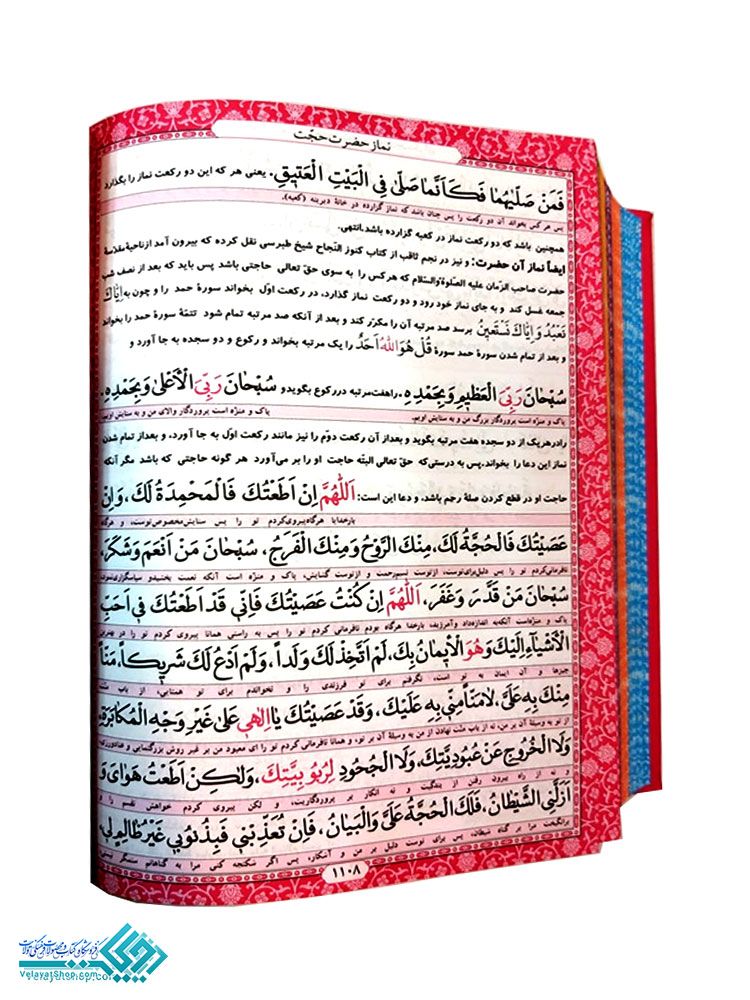 نماز حضرت حجّت
فَمَنْ صَلّٰیهُمٰا فَكَاَنَّمٰا صَلّیٰ فِی الْبَیْتِ الْعَتیٖقِ. یعنی هر که این دو رکعت نماز را بگذارد
پس هر کس بخواند آن دو رکعت را پس چنان باشد که نماز گزارده در خانهٔ دیرینه (کعبه).
همچنین باشد که دو رکعت نماز در کعبه گزارده باشد.انتهی.
ایضاً نماز آن حضرت: و نیز در نجم ثاقب از کتاب کنوز النّجاح شیخ طبرسی نقل کرده که بیرون آمد ازناحیهٔ مقدّسهٔ
حضرت صاحب الزّمان علیه الصّلوةوالسّلام که هرکس را به سوی حقّ تعالی حاجتی باشد پس باید که بعد از نصف شب
جمعه غسل کند و به جای نماز خود رود و دو رکعت نماز گذارد، در رکعت اوّل بخواند سورهٔ حمد را و چون به اِیّٰاكَ
نَعْبُدُ وَ اِیّٰاكَ نَسْتَعیٖنُ برسد صد مرتبه آن را مکرّر کند و بعد از آنکه صد مرتبه تمام شود تتمّهٔ سورهٔ حمد را بخواند
و بعد از تمام شدن سورهٔ حمد سورهٔ قُلْ هُوَ اللهُ اَحَدٌ را یک مرتبه بخواند و رکوع و دو سجده به جا آورد و
سُبْحٰانَ رَبِّیَ الْعَظیٖمِ وَ بِحَمْدِهٖ. راهفت مرتبه دررکوع بگویدو سُبْحٰانَ رَبِّیَ الْاَعْلیٰ وَ بِحَمْدِهٖ.
پاک و منزّه است پروردگار بزرگ من و به ستایش اویم. پاک و منزّه است پروردگار والای من و به ستایش اویم.
رادرهریک از دو سجده هفت مرتبه بگوید و بعداز آن رکعت دوّم را نیز مانند رکعت اوّل به جا آورد، و بعداز تمام شدن
نماز این دعا را بخواند.پس به درستی‌که حقّ تعالی البتّه حاجت او را بر می‌آورد هر گونه حاجتی که باشد مگر آنکه
حاجت او در قطع کردن صلهٔ رحم باشد، و دعا این است: اَللّٰهُمَّ اِنْ اَطَعْتُكَ فَالْمَحْمِدَةُ لَكَ، وَ اِنْ
بارخدایا هرگاه‌پیروی‌کردم تو را پس ستایش‌مخصوص‌توست، و هرگاه
عَصَیْتُكَ فَالْحُجَّةُ لَكَ، مِنْكَ الرَّوْحُ وَ مِنْكَ الْفَرَجُ، سُبْحٰانَ مَنْ اَنْعَمَ وَ شَكَرَ،
نافرمانی‌کردم تو را پس دلیل‌برای‌توست، ازتوست نسیم‌رحمت و ازتوست گشایش، پاک و منزّه است آنکه نعمت بخشیدو سپاسگزاری‌نمود،
سُبْحٰانَ مَنْ قَدَّرَ وَ غَفَرَ، اَللّٰهُمَّ اِنْ كُنْتُ عَصَیْتُكَ فَاِنّیٖ قَدْ اَطَعْتُكَ فیٖ اَحَبِّ
پاک و منزّه‌است آنکه‌به اندازه‌داد وآمرزید، بارخدایا هرگاه بودم نافرمانی کردم تو را پس به راستی همانا پیروی کردم تو را در بهترین
الْاَشْیٰآءِ اِلَیْكَ وَ هُوَ الْایٖمٰانُ بِكَ، لَمْ اَتَّخِذْ لَكَ وَلَداً، وَ لَمْ اَدْعُ لَكَ شَریٖكاً، مَنّاً
چیزها و آن ایمان به تو است، نگرفتم برای تو فرزندی را و نخواندم برای تو همتایی، از باب منّت
مِنْكَ بِهٖ عَلَیَّ، لٰا مَنّاً مِنّیٖ بِهٖ عَلَیْكَ، وَ قَدْ عَصَیْتُكَ یٰا اِلٰهیٖ عَلیٰ غَیْرِ وَجْهِ الْمُكٰابَرَةِ
از تو به وسیلهٔ آن بر من، نه از باب منّت نهادن از من به وسیلهٔ آن بر تو، و همانا نافرمانی کردم تو را ای معبود من بر غیر روش بزرگنمایی و عنادورزی
وَ لَا الْخُرُوجِ عَنْ عُبُودِیَّتِكَ، وَ لَا الْجُحُودِ لِرُبُوبِیَّتِكَ، وَلٰكِنْ اَطَعْتُ هَوٰایَ وَ
و نه از راه بیرون رفتن از بندگیت و نه انکار بر پروردگاریت، و لکن پیروی کردم خواهش نفسم را و
اَزَلَّنِی الشَّیْطٰانُ، فَلَكَ الْحُجَّةُ عَلَیَّ وَ الْبَیٰانُ، فَاِنْ تُعَذِّبْنیٖ فَبِذُنُوبیٖ غَیْرُ ظٰالِمٍ لیٖ،
برانگیخت مرا بر گناه شیطان، پس برای توست دلیل بر من و آشکار، پس اگر شکنجه کنی مرا به گناهانم ستمگر نیستی
۱۱۰۸
VelayatShop.com